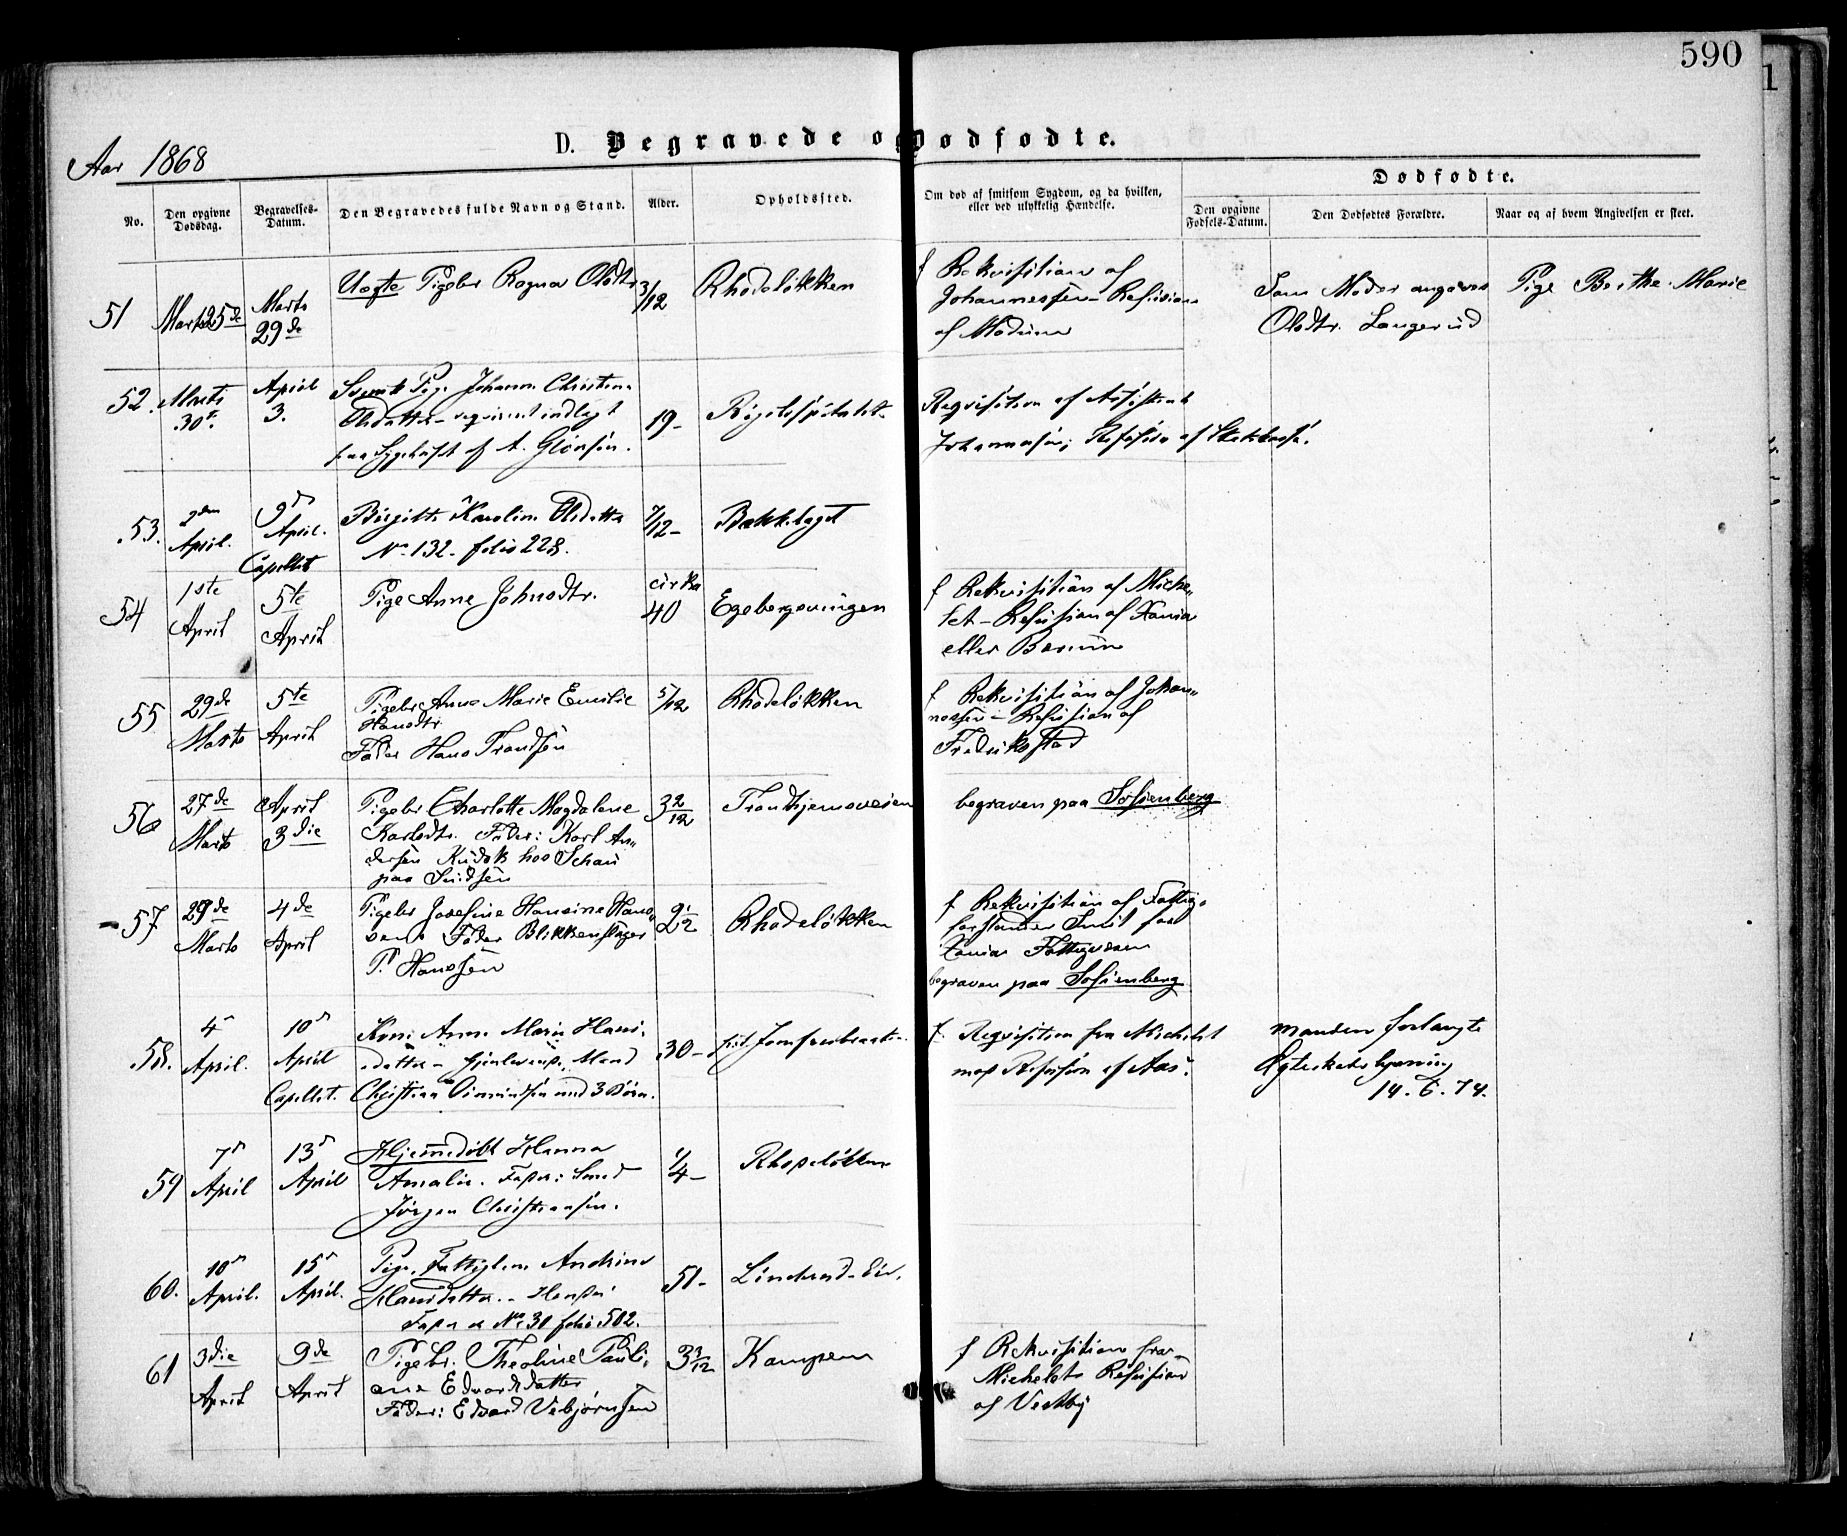 590
1
Aar 1868
D. Begravede og Dødfødte.
No.
Den opgivne Dødsdag.
Begravelses-Datum.
Den Begravedes fulde Navn og Stand.
Alder.
Opholdssted.
Om død af smitsom Sygdom, og da hvilken, eller ved ulykkelig Hændelse.
Dødfødte.
Den opgivne Fødsels-Datum.
Den Dødfødtes Forældre.
Naar og af hvem Angivelsen er skeet.
51
Marts 25de
Marts 29de
Uægte Pigebr Ragna Olsdtr
3/12
Rhodeløkken
f Rekvisition af
Johannessen - Refusion
af Modum
Som Moder angaves Pige Berthe Marie
Olsdtr. Langerud
52.
Marts 30t.
April 3.
Svensk Pige Johanne Christine
Olsdatter - indlagt
paa Sygehuset af A.
19-
Rigshospitalet
Reqvisition af Assistent
Johannesen; Refusion af
53.
2den April.
9d April. Capellet
Birgitte Karoline Olsdatter
No 132 - folio 228.
7/12-
Bækkelaget
54
1ste April
5te April
Pige Anne Johnsdtr.
cirka 40
Egebergsvingen
f Rekvisition af Miche-
let - Refusion af Xania
eller Bærum
55
29de Marts
5te April
Pigebr Anne Marie Emilie
Hansdtr
Fader Hans Trondsen
5/12
Rhodeløkken
f Rekvisition af Johan-
nessen - Refusion af
Fredriksstad
56
27de Marts
April 3die
Pigebr Charlotte Magdalene
Karlsdtr. Fader: Karl An-
dersen Kudsk hos Schou
paa
3 2/12
Trondhjemsveien
begraven paa Sofienberg
57
29de Marts
4de April
Pigebr Josefine Hansine Hans-
sens Fader Blikkenslager
P. Hanssen
2 1/2
Rhodeløkken
f Rekvisition af Fattig-
forstander for
Xania Fattigvæsen
begraven paa Sofienberg
58.
4d April.
10d April Capellet.
Kone Anne Marie Hans-
datter - Mand
Christian med 3 Børn.
30-
Jomfrubraaten
f. Reqvisition fra Michelet
mod Refusion af Aas.
Manden forlangte
Ægteskabs lysning
14. 6. 74.
59
7d April
13d April
Hjemmedøbt Hanna
Amalie. Fader: Smed
Jørgen Christiansen.
1/4-
Rhodeløkken
60.
10d April.
15d April.
Pige, Fattiglem Andrine
Hansdatter -
No 30 folio 502.
51-
Linderud-Eie.
61
3die April
9de April
Pigebr. Theoline Pauli-
ane Edvardsdatter
Fader: Edvard Vebjørnsen
3 3/12
Kampen
f Rekvisition fra
Michelet Refusion
af Vestby